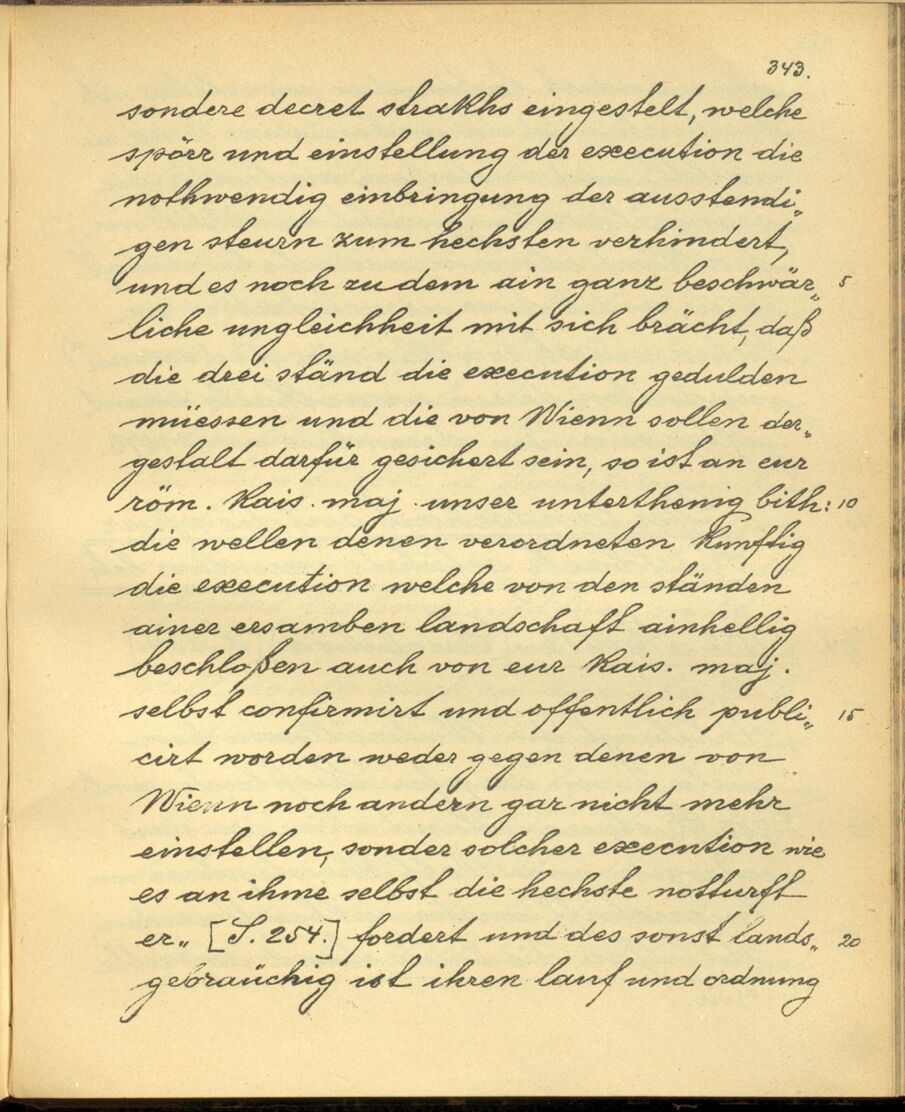 343.
sondere decret strakhs eingestelt, welche
spörr und einstellung der execution die
nothwendig einbringung der ausstendi„
gen steurn zum hechsten verhindert,
und es noch zu dem ain ganz beschwär„ 5
liche ungleichheit mit sich brächt, daß
die drei ständ die execution gedulden
müessen und die von Wienn sollen der„
gestalt darfür gesichert sein, so ist an eur
röm. Kais. maj. unser unterthenig bith: 10
die wellen denen verordneten kunftig
die execution welche von den ständen
ainer ersamben landschaft ainhellig
beschloßen auch von eur Kais. maj.
selbst confirmirt und offentlich publi„ 15
cirt worden weder gegen denen von
Wienn noch andern gar nicht mehr
einstellen, sonder solcher execution wie
es an ihme selbst die hechste notturft
er„ [S. 254.] fordert und des sonst lands„ 20
gebräuchig ist ihren lauf und ordnung